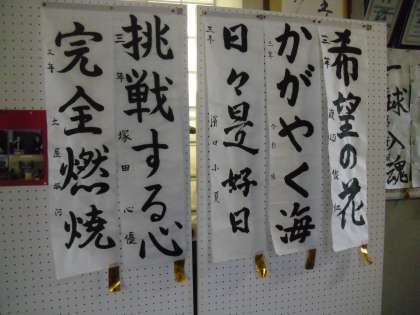 一球入魂
希望の花
三年
かがやく海
三年
日々是好日
三年 濱口小夏
挑戦する心
三年 塚田心優
完全燃焼
三年